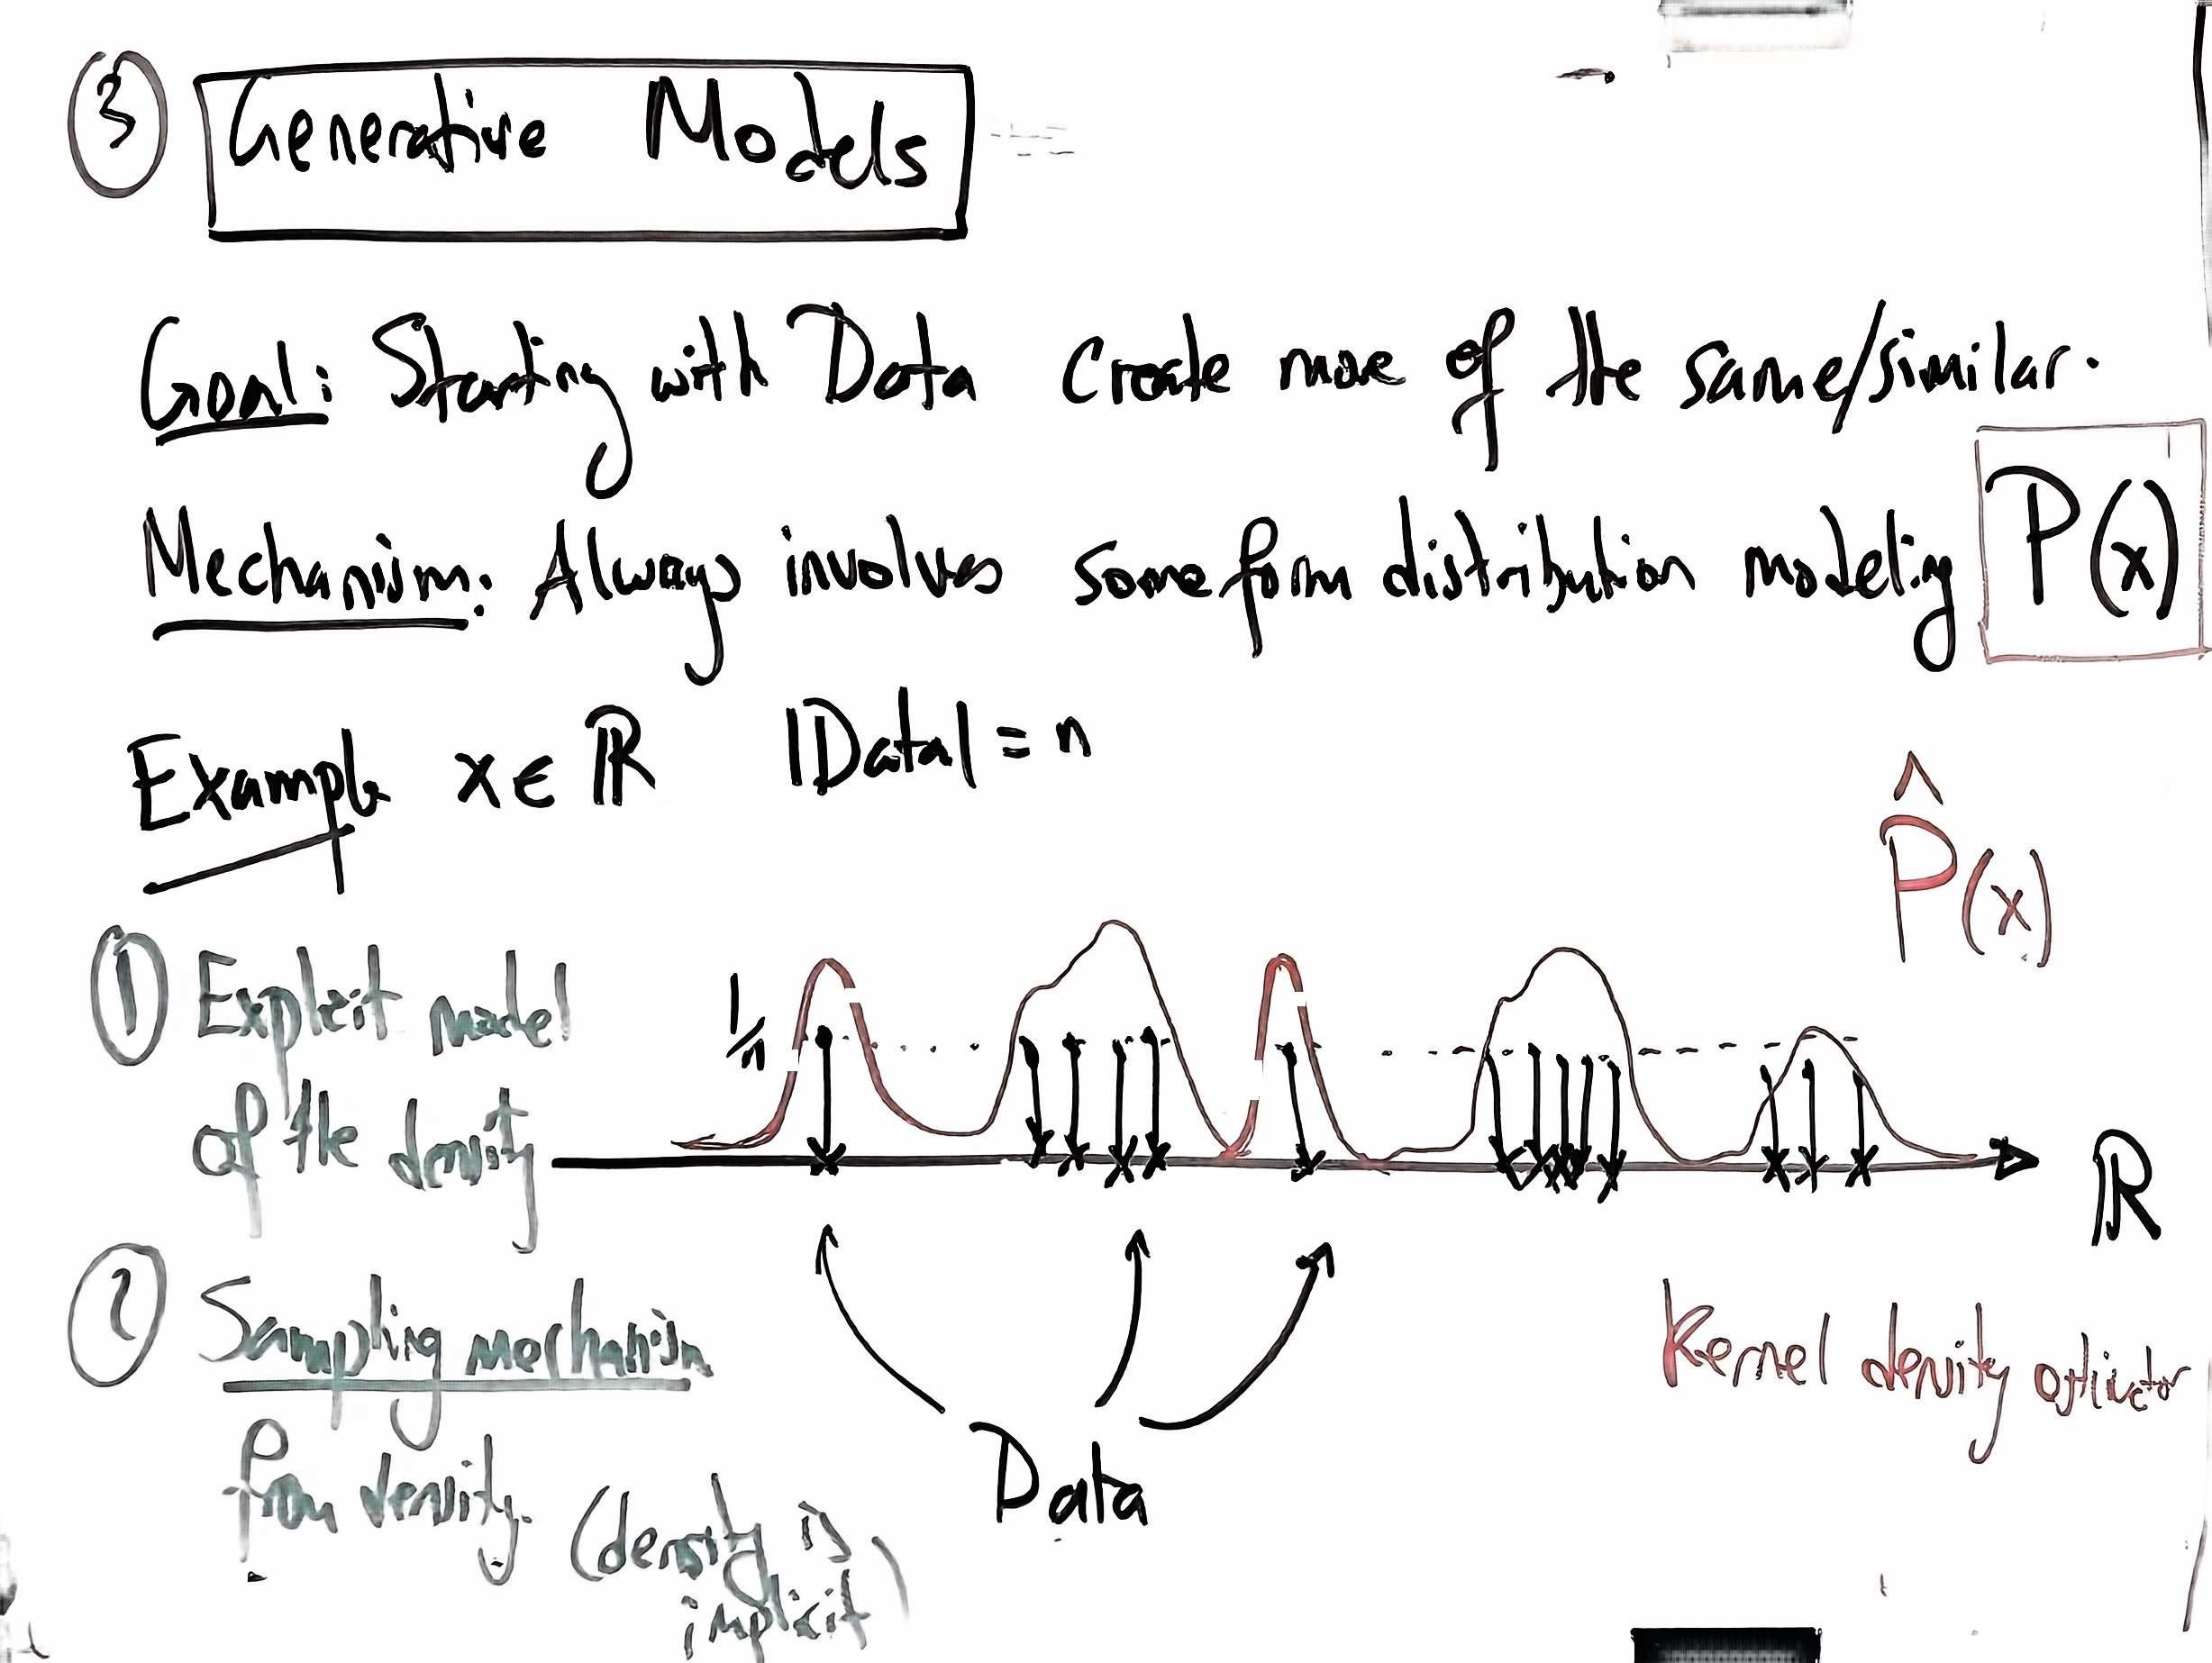 3 Generative Models
Goal: Starting with Data Create more of the same/similar.
Mechanism: Always involves some form distribution modeling P(x)
Example x ∈ ℝ |Data| = n
P̂(x)
1 Explicit model
of the density
1/n
ℝ
2 Sampling mechanism
from density. (density is
implicit)
Data
Kernel density